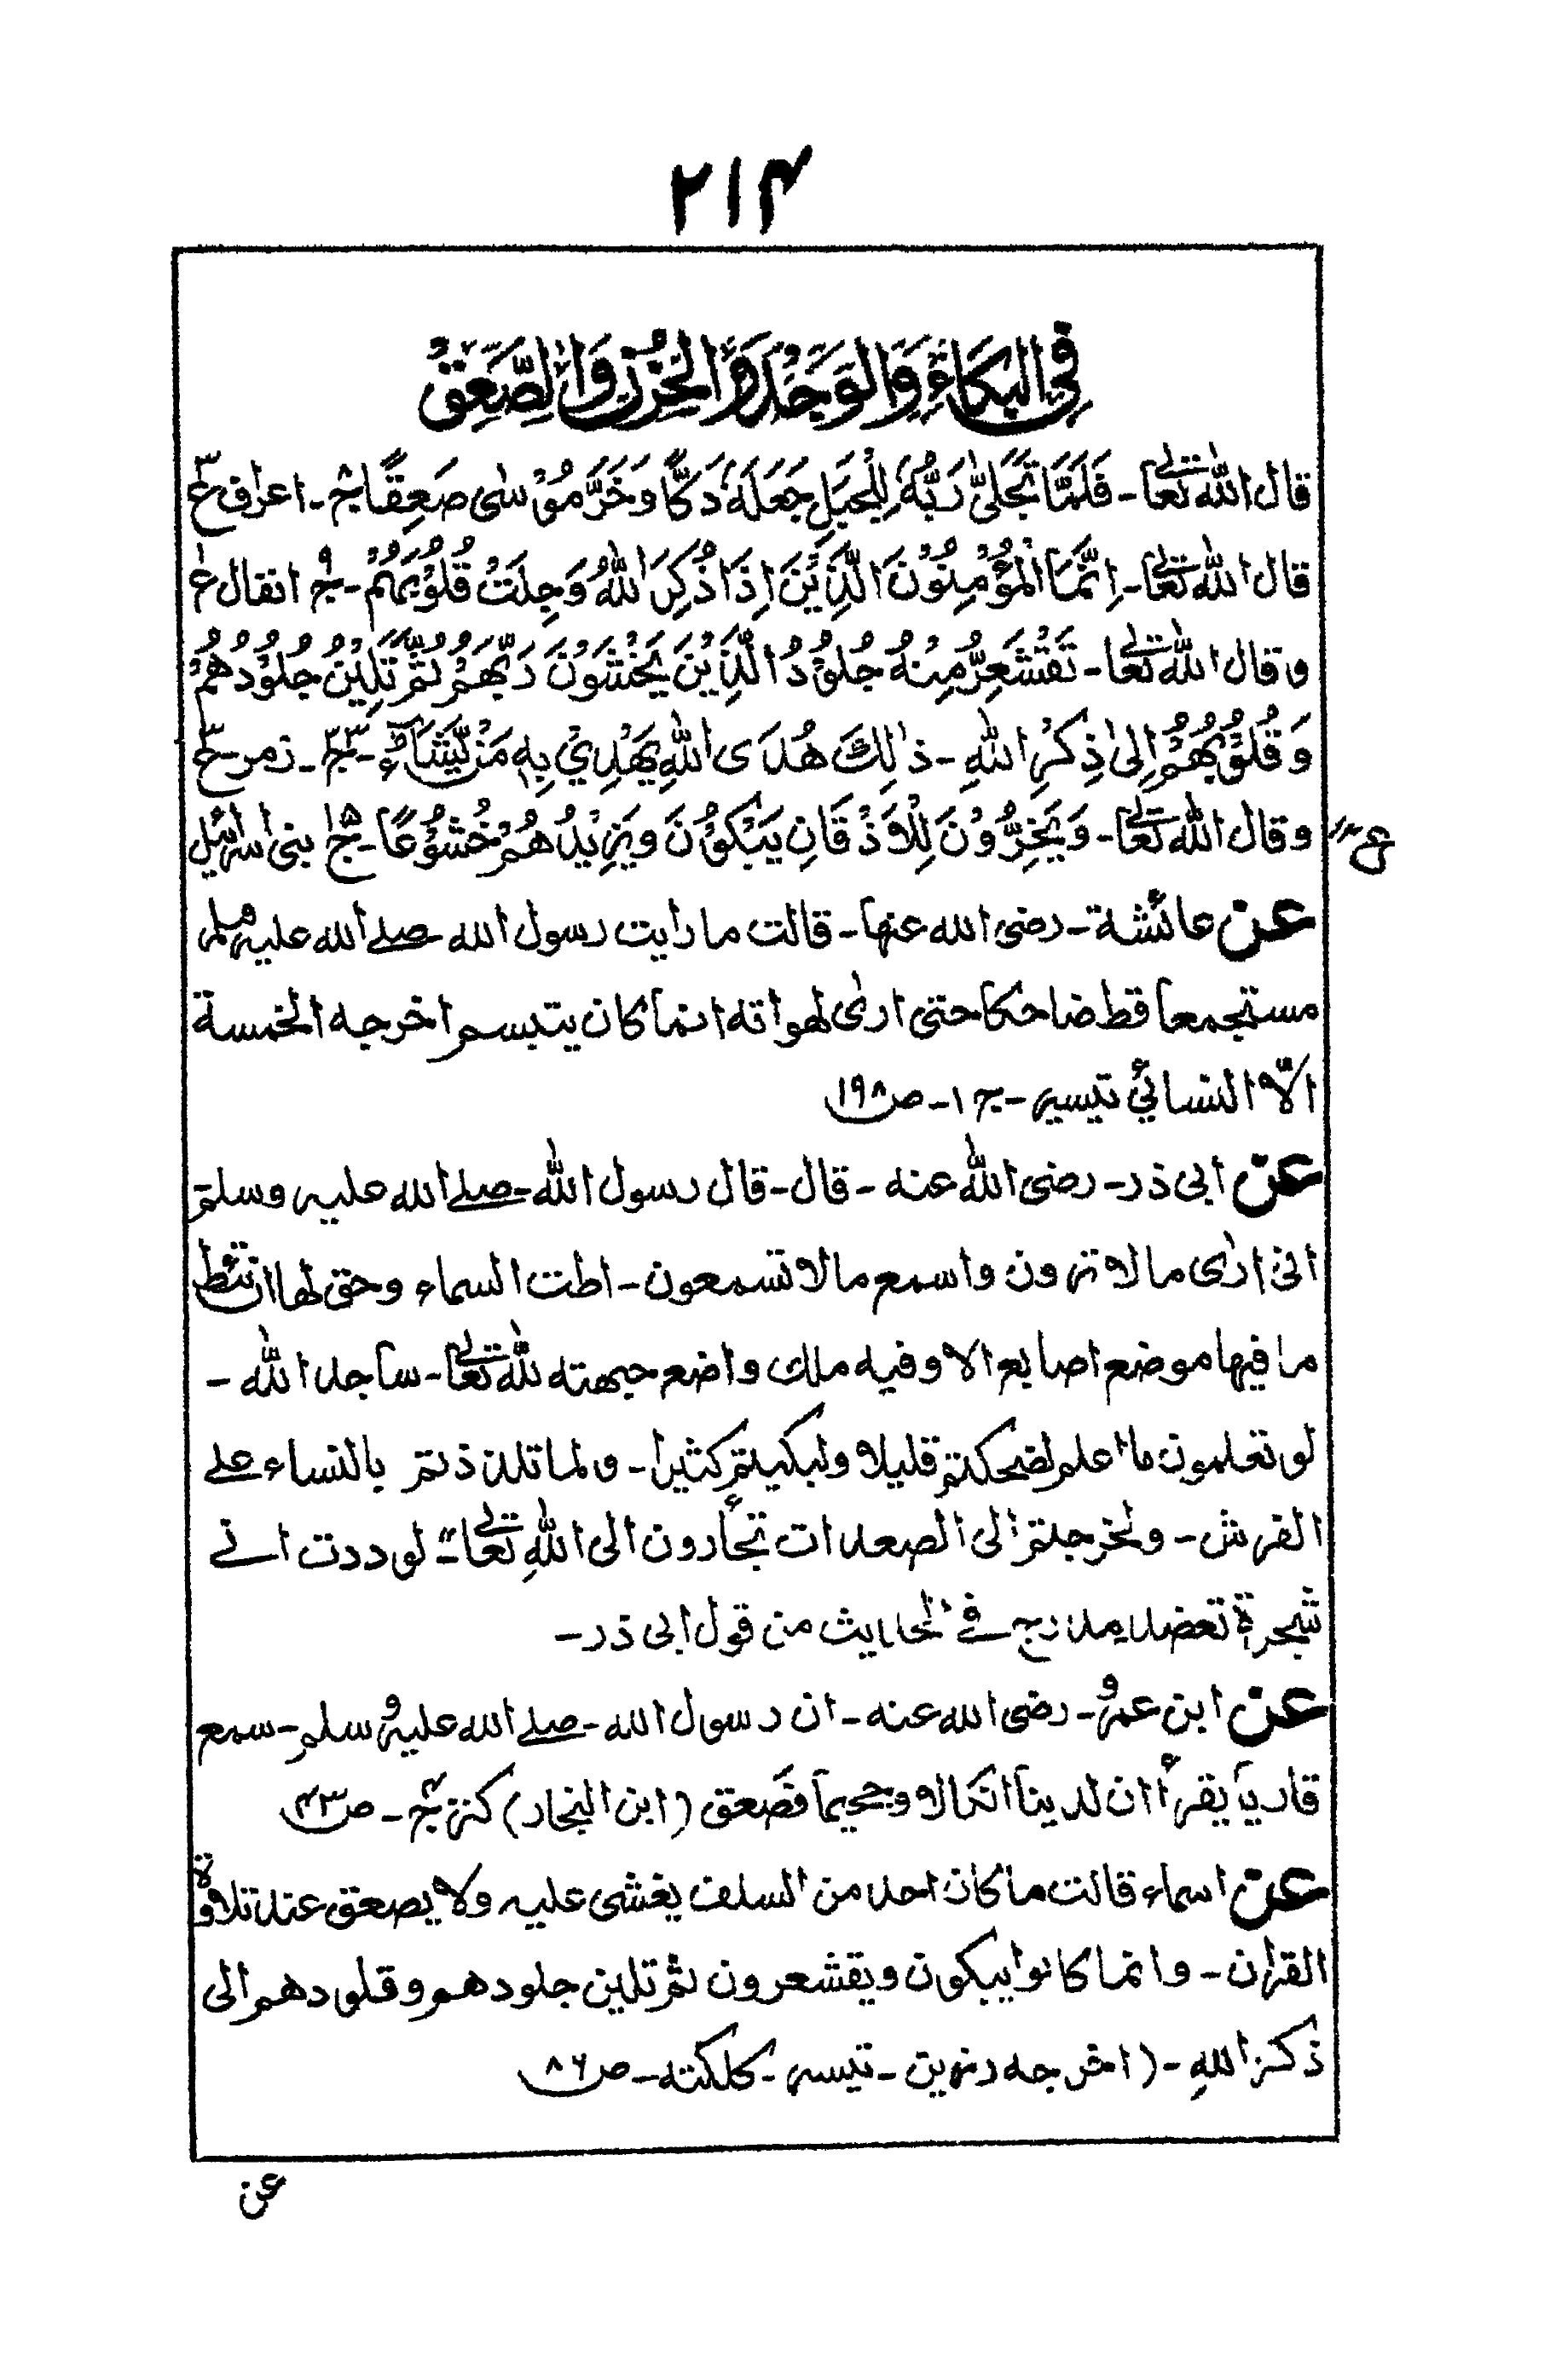 ۲۱۴
فِي الْبُكَاءِ وَالْوَجْدِ وَالْحُزْنِ وَالصَّعْقِ
قال الله تعالٰى - فَلَمَّا تَجَلّٰى رَبُّهٗ لِلْجَبَلِ جَعَلَهٗ دَكًّا وَّخَرَّ مُوْسٰى صَعِقًا - اعراف
قال الله تعالٰى - اِنَّمَا الْمُؤْمِنُوْنَ الَّذِيْنَ اِذَا ذُكِرَ اللهُ وَجِلَتْ قُلُوْبُهُمْ - انفال
وقال الله تعالٰى - تَقْشَعِرُّ مِنْهُ جُلُوْدُ الَّذِيْنَ يَخْشَوْنَ رَبَّهُمْ ثُمَّ تَلِيْنُ جُلُوْدُهُمْ
وَقُلُوْبُهُمْ اِلٰى ذِكْرِ اللهِ - ذٰلِكَ هُدَى اللهِ يَهْدِيْ بِهٖ مَنْ يَّشَآءُ - زمر
وقال الله تعالٰى - وَيَخِرُّوْنَ لِلْاَذْقَانِ يَبْكُوْنَ وَيَزِيْدُهُمْ خُشُوْعًا - بنى اسرائيل
عن عائشة - رضى الله عنها - قالت ما رايت رسول الله صلے الله عليه وسلم
مستجمعا قط ضاحكا حتى ارى لهواته انما كان يتبسم اخرجه الخمسة
الّا النسائي تيسير - ج ۱ - ص ۱۹۸
عن ابى ذر - رضى الله عنه - قال - قال رسول الله - صلے الله عليه وسلم
انى ارٰى ما لا ترون واسمع ما لا تسمعون - اطت السماء وحق لها ان تئط
ما فيها موضع اصابع الا وفيه ملك واضع جبهته لله تعالٰى - ساجد الله -
لو تعلمون ما اعلم لضحكتم قليلا ولبكيتم كثيرا - ولما تلذذتم بالنساء علے
الفرش - ولخرجتم الى الصعدات تجأرون الى اللهِ تعالٰى - لوددت انے
شجرة تعضد مدرج فے الحديث من قول ابى ذر -
عن ابن عمر - رضى الله عنه - ان رسول الله - صلے الله عليه وسلم - سمع
قاريا يقرأ ان لدينا انكالا وجحيما فصعق (ابن النجار) كنز - ص ۴۳
عن اسماء قالت ما كان احد من السلف يغشى عليه ولا يصعق عند تلاوة
القران - وانما كانوا يبكون ويقشعرون ثم تلين جلودهم وقلودهم الى
ذكر اللهِ - (اخرجه رزين - تيسير - كلكته - ص ۸۶
عن